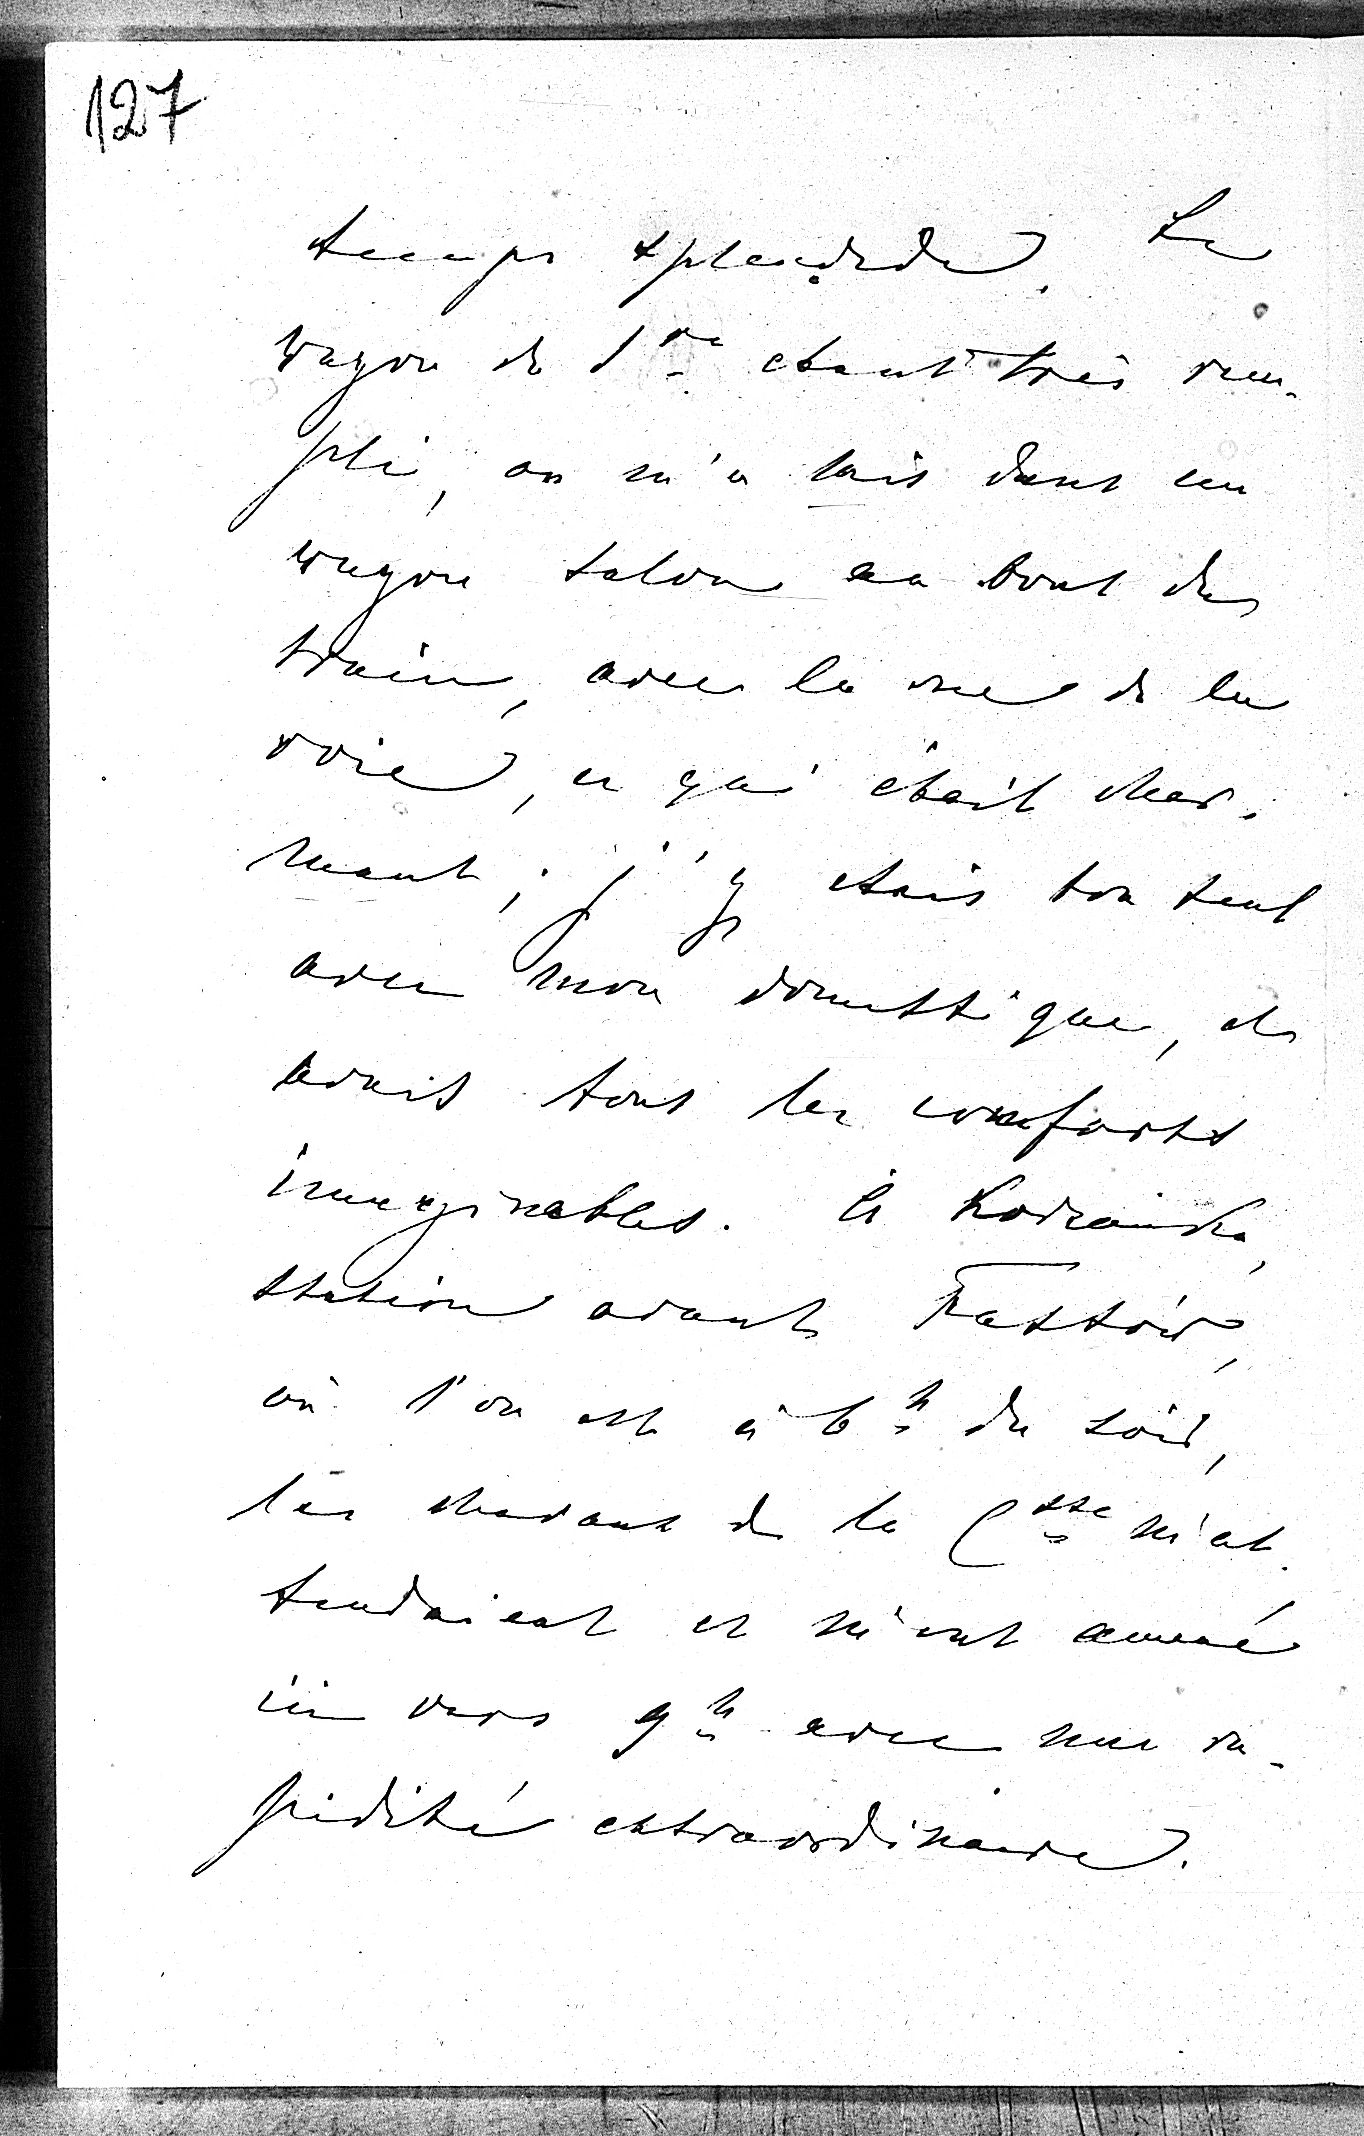 127
temps splendide. Le
wagon de 1re étant très rem-
pli, on m'a mis dans un
wagon salon au bout du
train, avec la vue de la
voie, ce qui était char-
mant; j'y étais tou seul
avec mon domestique, et
avais tous les comforts
imaginables. À Kodzanka,
station avant Fastów,
où l'on est à 6h du soir,
les chevaux de la Csse m'at-
tendaient et m'ont amené
ici vers 9h avec une ra-
pidité extraordinaire.